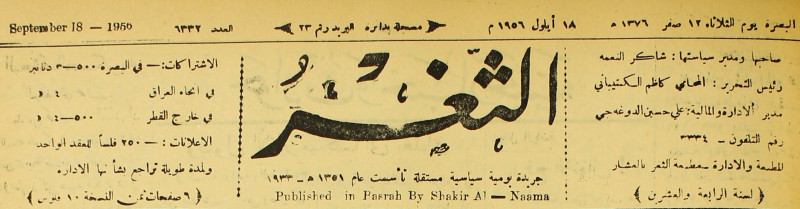 البصرة يوم الثلاثاء ١٢ صفر ١٣٧٦ هـ
١٨ أيلول ١٩٥٦ م
مسجلة بدائرة البريد رقم ٢٣
العدد ٦٣٣٢
September 18 — 1956
صاحبها ومدير سياستها : شاكر النعمه
رئيس التحرير : المحامي كاظم الكشتيباني
مدير الادارة والمالية : علي حسين الدوغه جي
رقم التلفون — ٣٣٣٤
المطبعة والادارة — مطبعة الثغر بالعشار
﴿ لسنة الرابعة والعشرين ﴾
الثغر
جريدة يومية سياسية مستقلة تأسست عام ١٣٥١ هـ — ١٩٣٣
Published in Basrah By Shakir Al — Naama
الاشتراكات :— في البصرة ٥٠٠—٣ دنانير
في انحاء العراق ٤ د
في خارج القطر ٥٠٠—٤ د
الاعلانات :— ٢٥٠ فلساً للعقد الواحد
ولمدة طويلة تراجع بشأنها الادارة
﴿ ٦ صفحات ثمن النسخة ١٠ فلوس ﴾